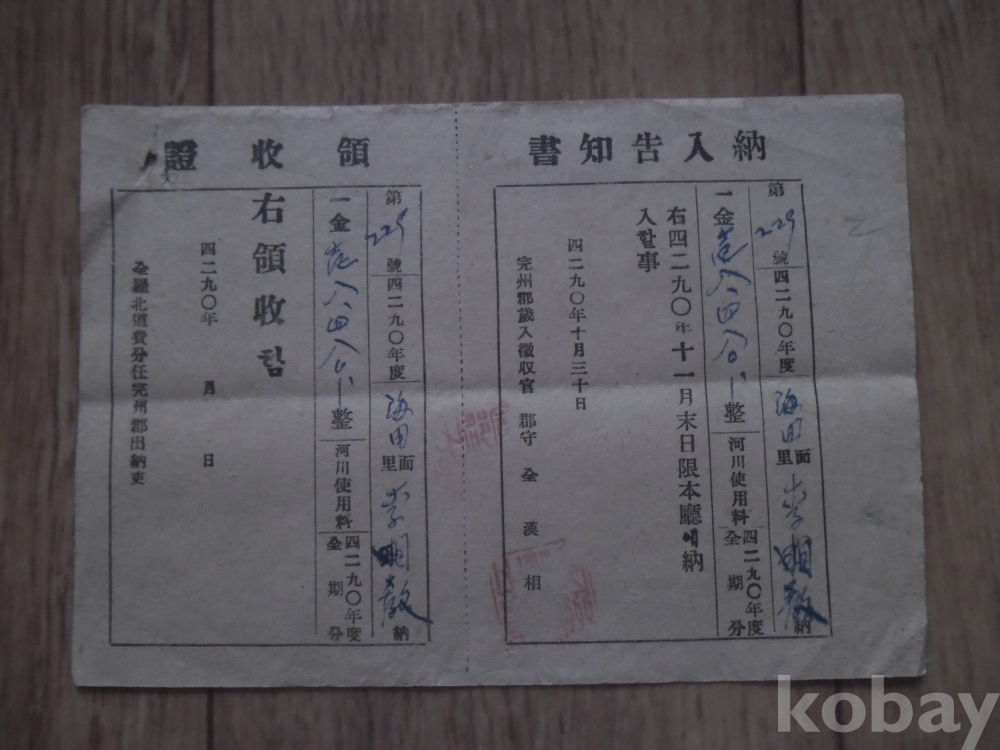 納入告知書
第229號 四二九〇年度 海田里面 李明教 納
一金壱八四八〇整 河川使用料 四二九〇年度全期分
右四二九〇年十一月末日限本廳에納
入할事
四二九〇年十月三十日
完州郡歲入徵収官 郡守 全漢相
領収證
第229號 四二九〇年度 海田里面 李明教 納
一金壱八四八〇整 河川使用料 四二九〇年度全期分
右領収함
四二九〇年 月 日
全羅北道費分任完州郡出納吏
kobay